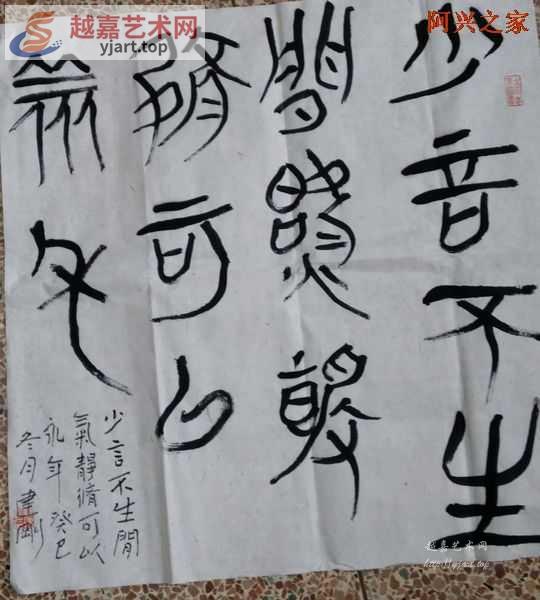 越嘉艺术网
yjart.top
阿兴之家
少言不生
閒氣靜
脩可以
永年
少言不生閒
氣靜脩可以
永年 癸巳
冬月
越嘉艺术网
http://yjart.top